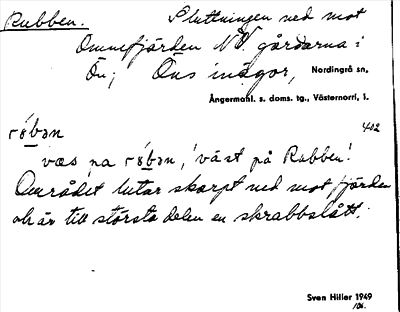 Rubben. Sluttningen ned mot
Omnefjärden NV. gårdarna i
Ön; Öns inägor, Nordingrå sn,
Ångermanl. s. doms. tg., Västernorrl. l.
402
væs pa
'väst på Rubben'.
Området lutar skarpt ned mot fjärden
och är till största delen en skrabbslått.
Sven Hiller 1949